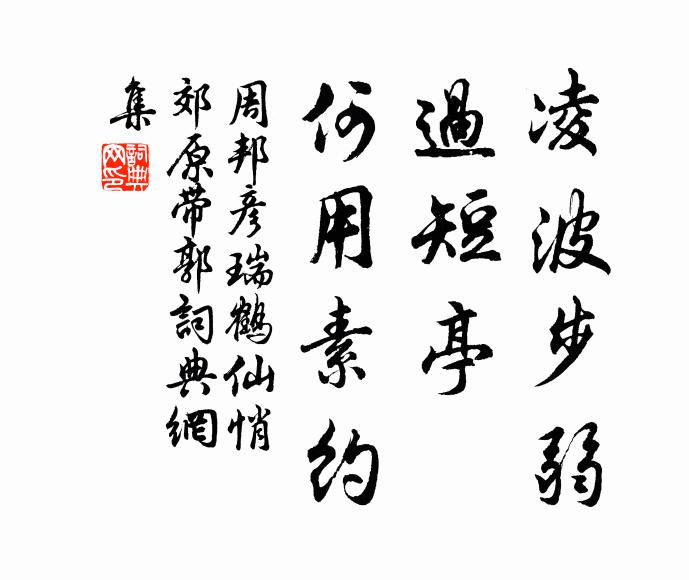 凌波步弱
過短亭
何用素約
周邦彦瑞鶴仙悄
郊原带郭詞典網
集
詞典網印